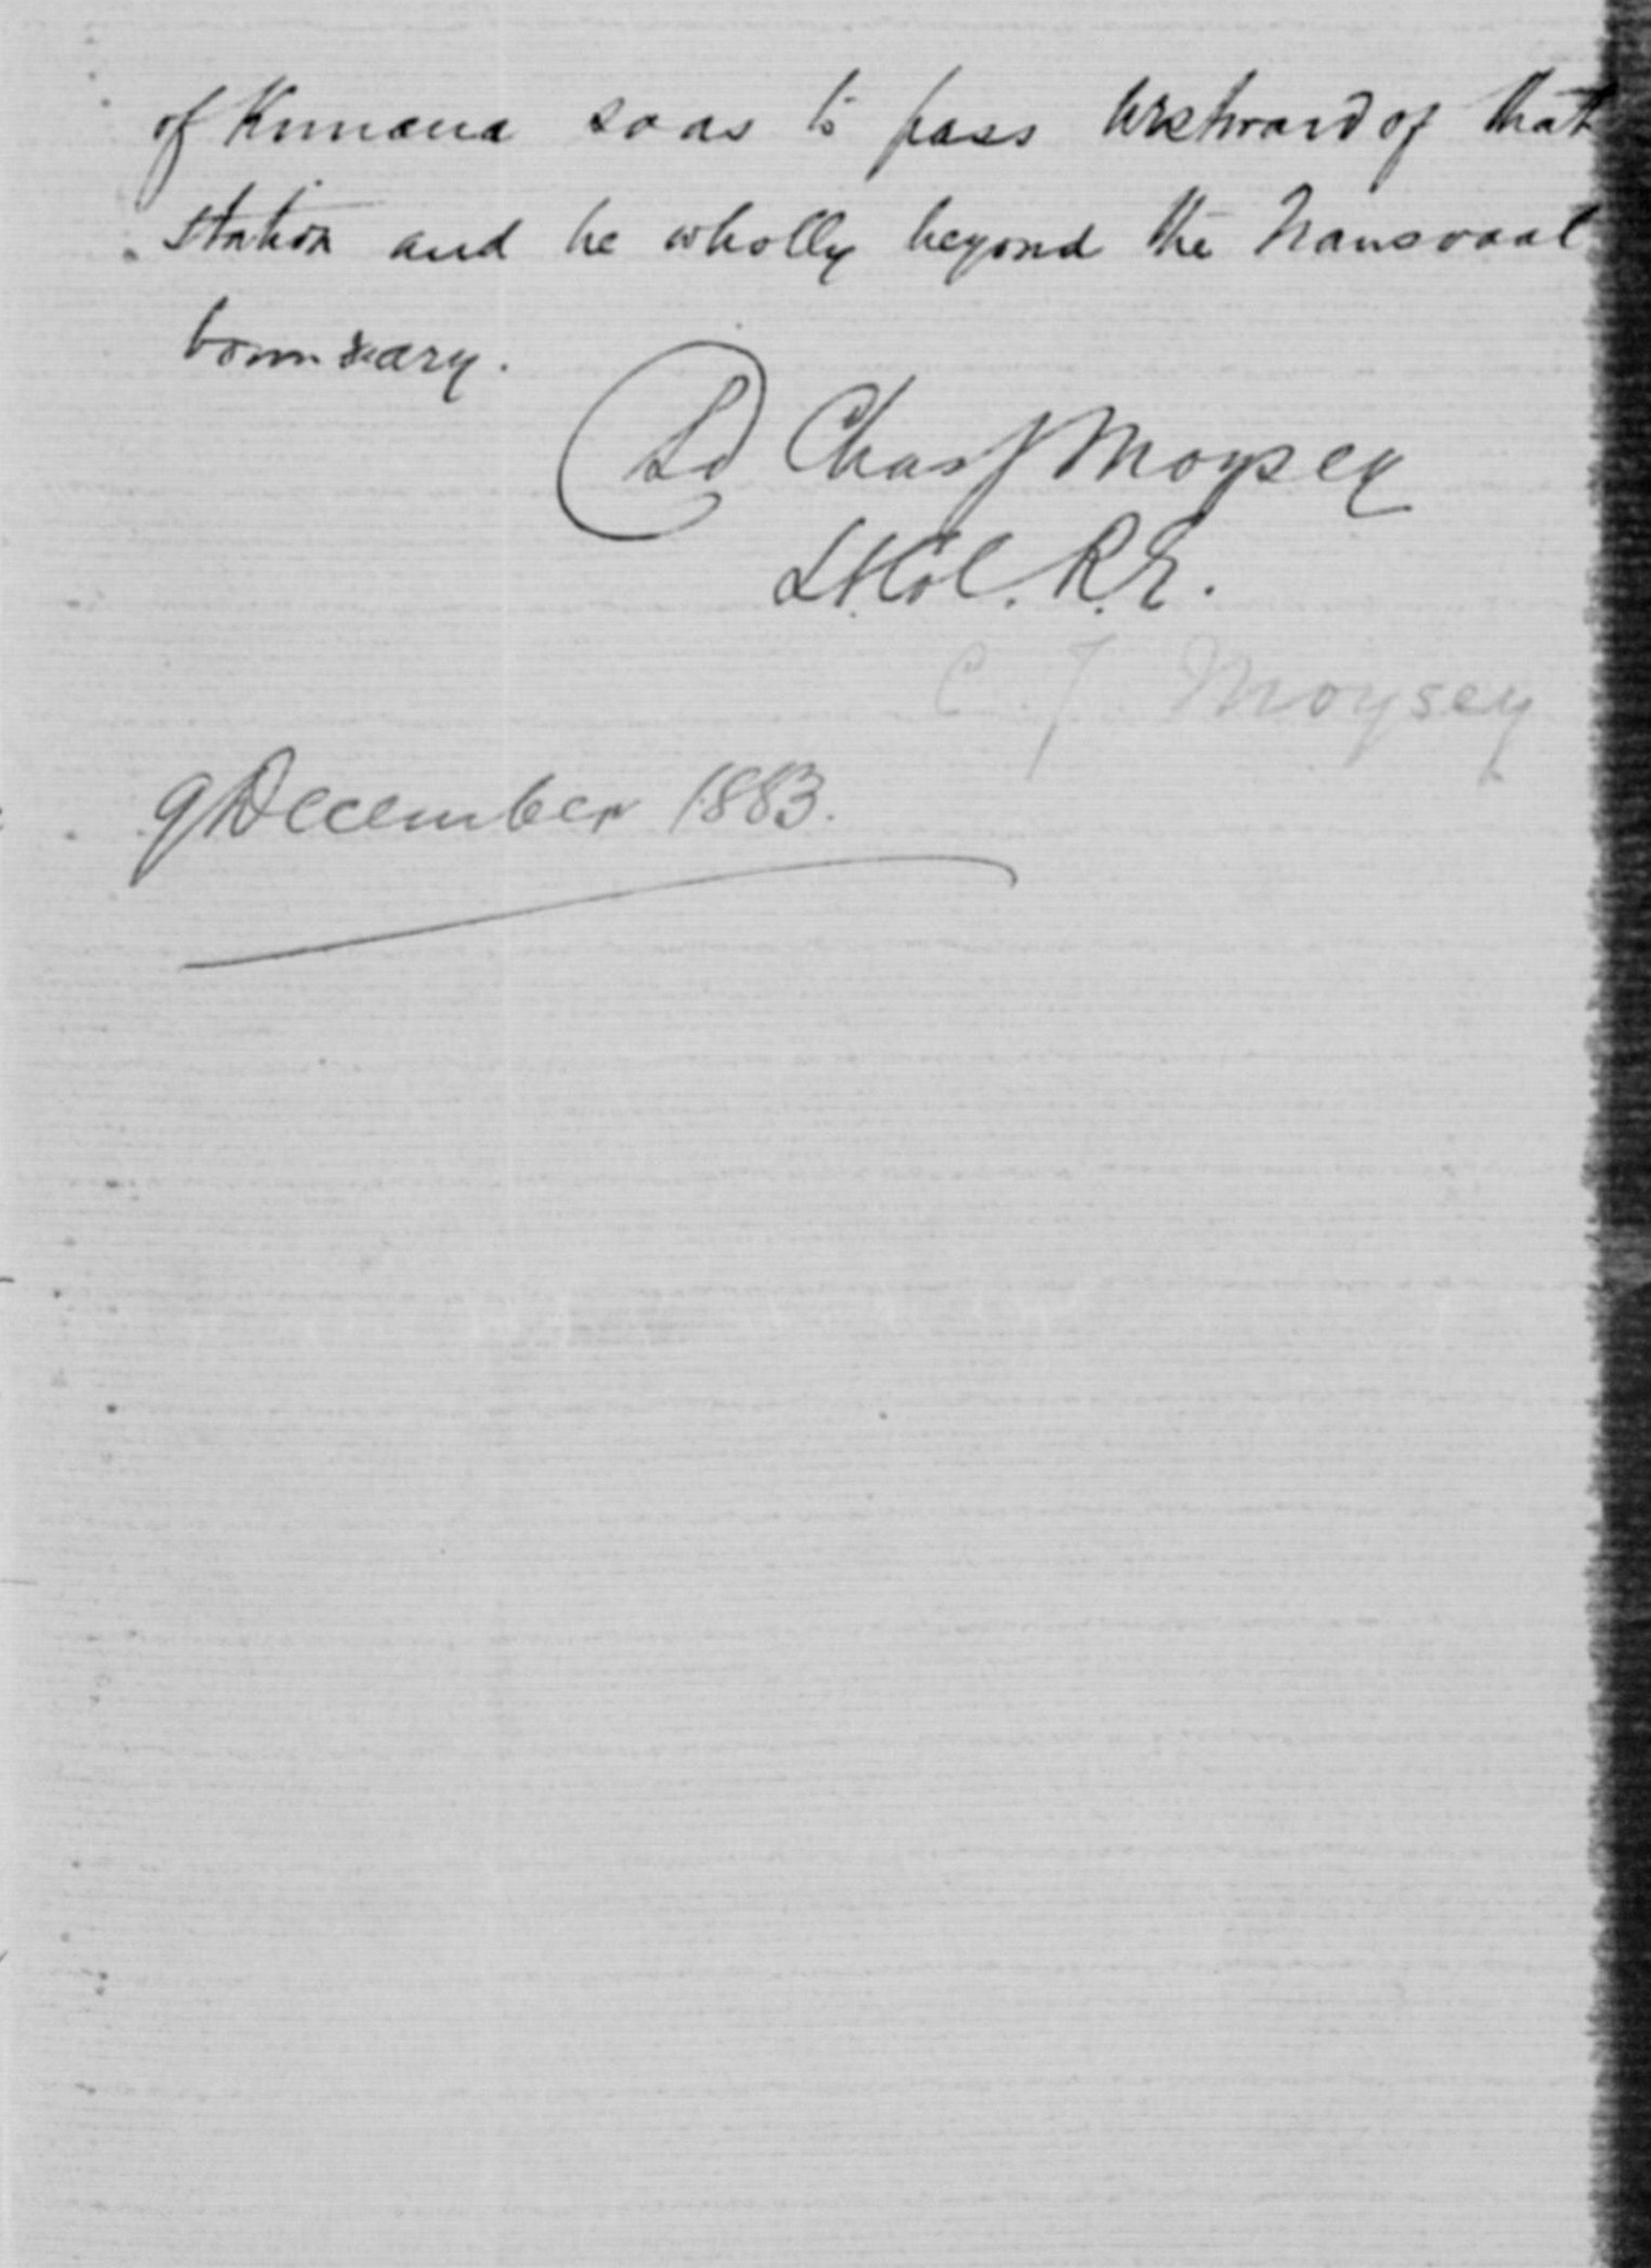 of Kunana so as to pass Westward of that
station and be wholly beyond the Transvaal
boundary.
(Sd) Chas J Moysey
Lt. Col. R.E.
C. J. Moysey
9 December 1883.